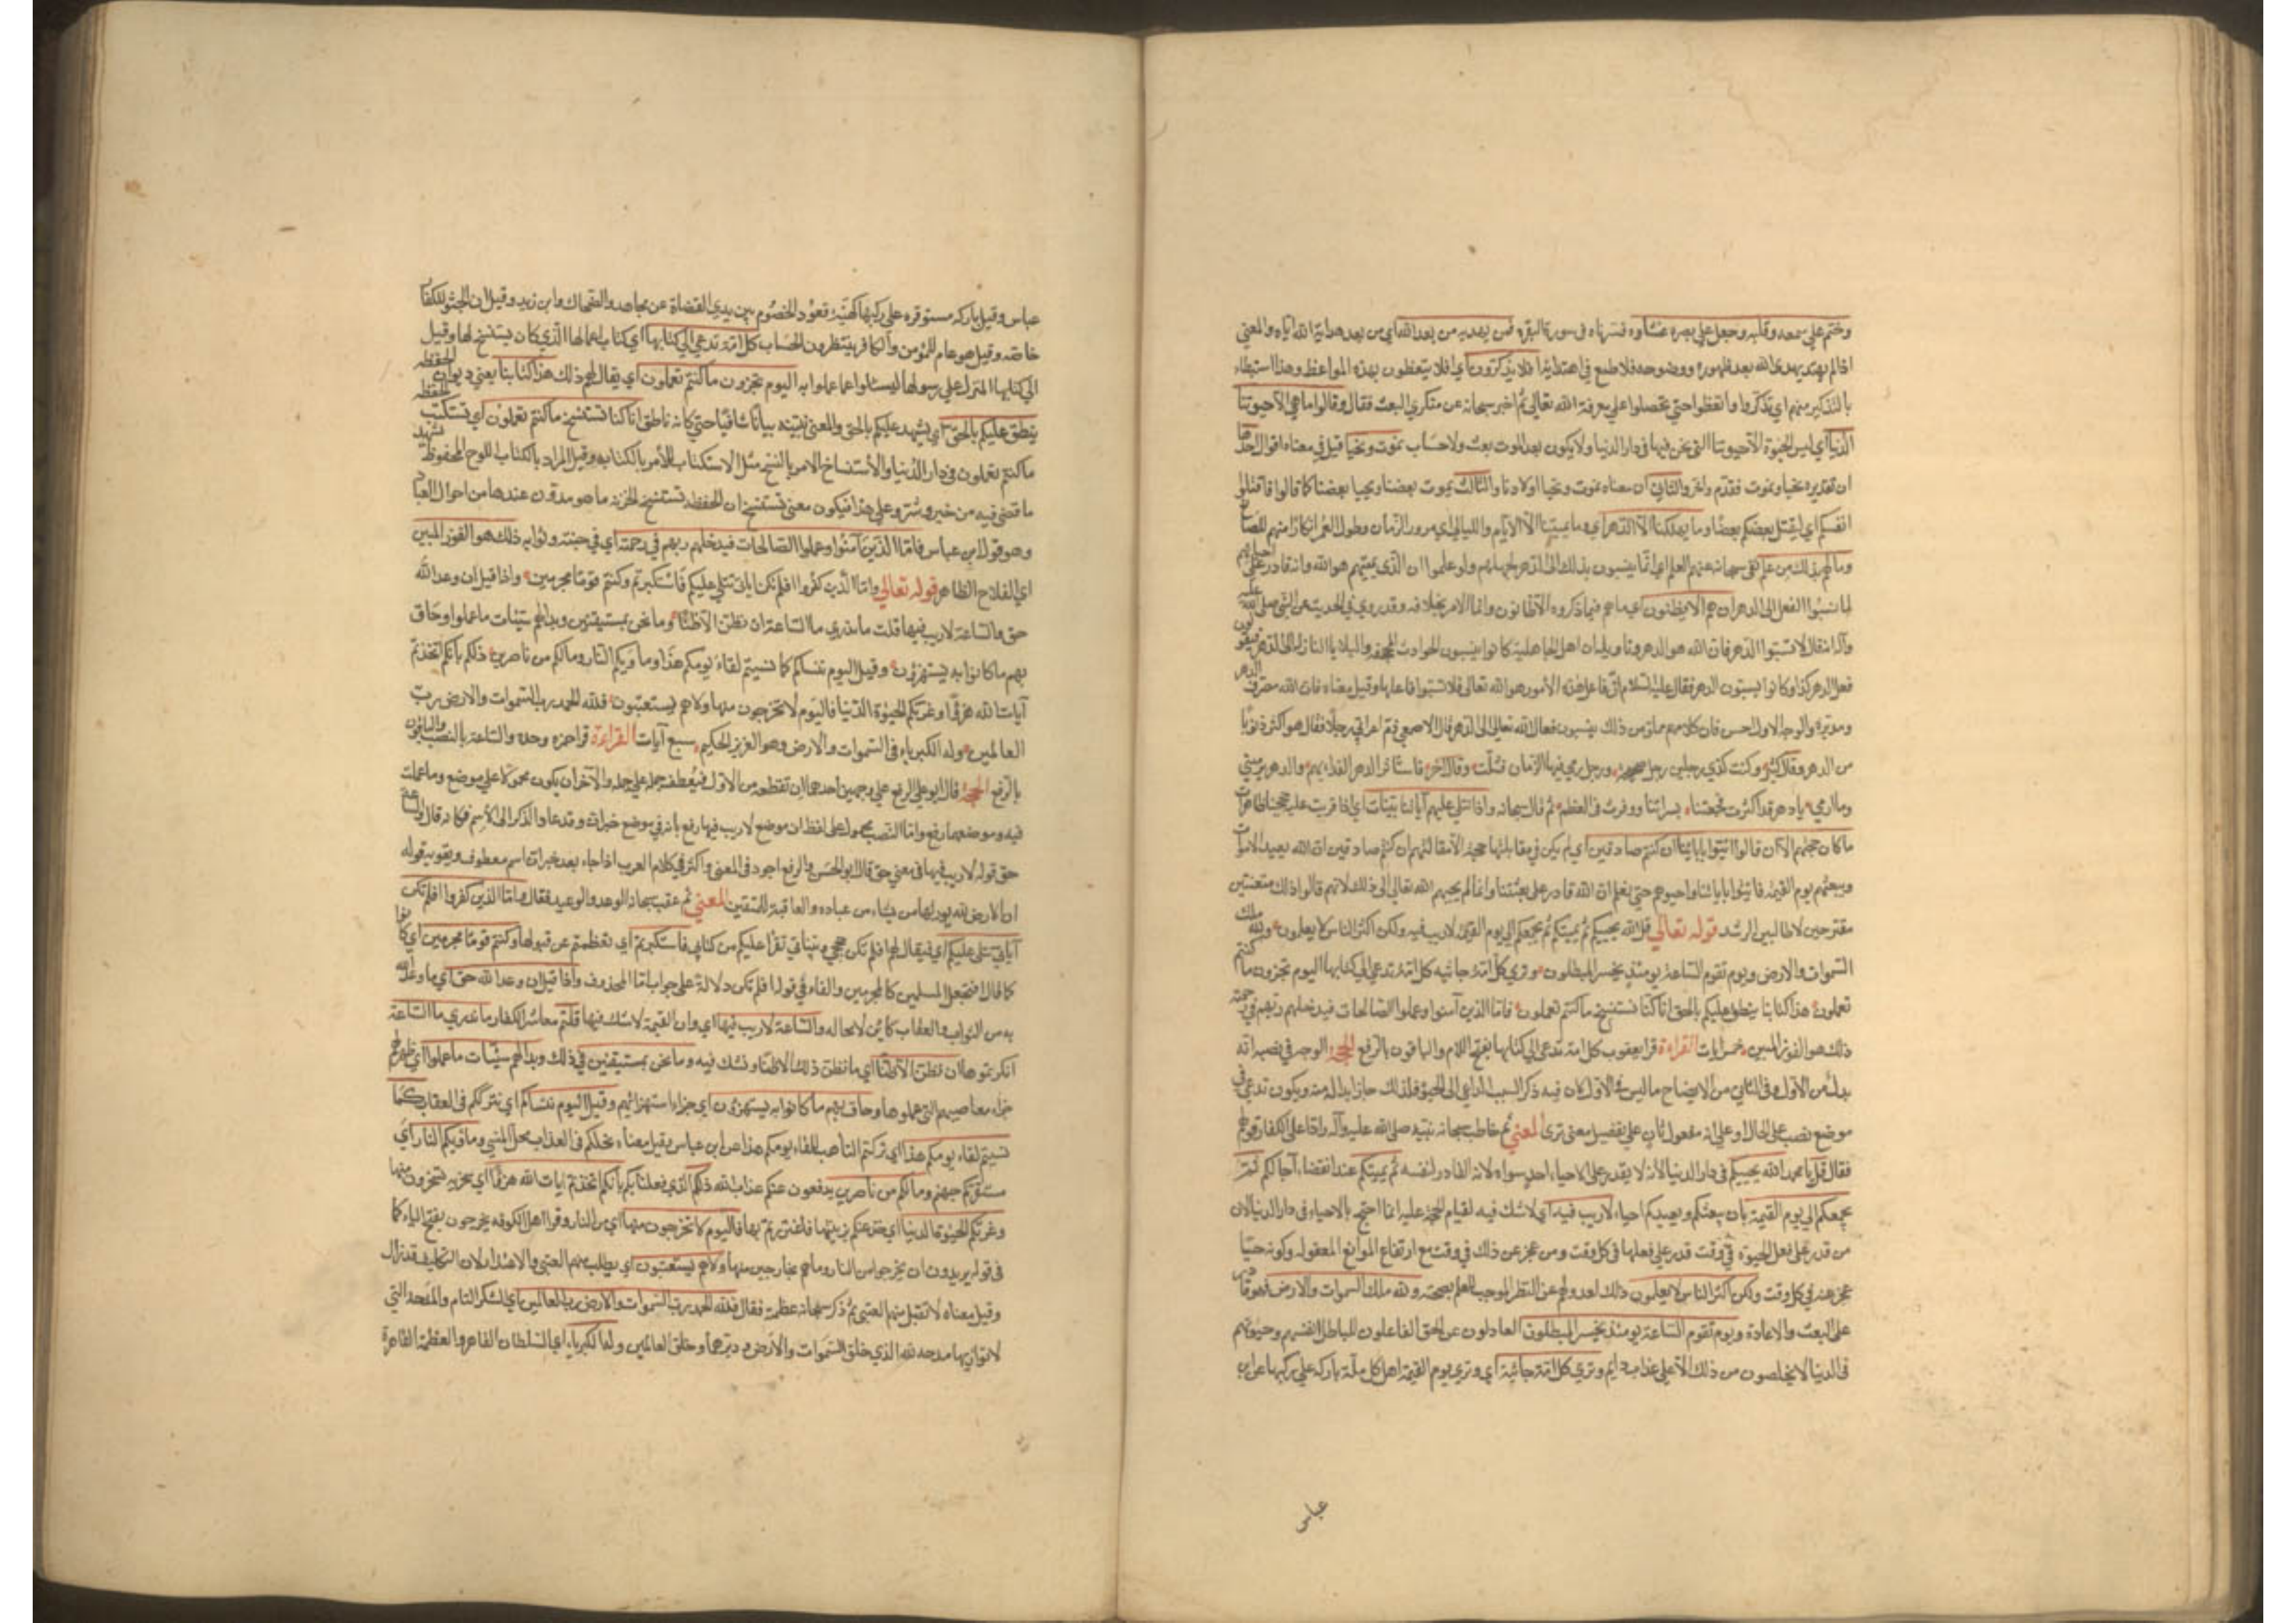 وختم علي سمعه وقلبه وجعل علي بصره غشاوه فسرناه في سورة البقرة فمن يهديه من بعد الله اي من بعد هداية الله اياه والمعني
اذا لم يهتد بهدي الله بعد ظهوره ووضوحه فلا طمع في اهتدائه افلا تذكرون اي افلا يتعظون بهذه المواعظ وهذا استبطاء
بالتذكير منهم اي تذكروا واتعظوا حتي تحصلوا علي معرفة الله تعالي ثم اخبر سبحانه عن منكري البعث فقال وقالوا ما هي الا حيوتنا
الدنيا اي ليس الحيوة الا حيوتنا التي نحن فيها في دار الدنيا ولا يكون بعد الموت بعث ولا حساب نموت ونحيا قيل في معناه اقوال احدها
ان تقديره نحيا ونموت فقدم واخر والثاني ان معناه نموت ونحيا اولادنا والثالث يموت بعضنا ويحيا بعضنا كما قال فاقتلوا
انفسكم اي ليقتل بعضكم بعضا وما يهلكنا الا الدهر اي وما يميتنا الا الايام والليالي اي مرور الزمان وطول العمر انكارا منهم للصانع
وما لهم بذلك من علم نفي سبحانه عنهم العلم اي انما ينسبون ذلك الي الدهر لجهلهم ولو علموا ان الذي يميتهم هو الله وانه قادر علي احيائهم
لما نسبوا الفعل الي الدهر ان هم الا يظنون اي ما هم فيما ذكروه الا ظانون وانما الامر بخلافه وقد روي في الحديث عن النبي صلي الله عليه
وآله انه قال لا تسبوا الدهر فان الله هو الدهر وتاويله ان اهل الجاهلية كانوا ينسبون الحوادث المجحفة والبلايا النازلة الي الدهر فيقولون
فعل الدهر كذا وكانوا يسبون الدهر فقال عليه السلام ان فاعل هذه الأمور هو الله تعالي فلا تسبوا فاعلها وقيل معناه فان الله مصرف الدهر
ومدبره والوجه الاول احسن فان كلامهم مملو من ذلك ينسبون فعال الله تعالي الي الدهر قال الاصمعي ذم اعرابي رجلا فقال هو اكثر ذنوبا
من الدهر وقال كثير وكنت كذي رجلين رجل صحيحة ورجل رمي فيها الزمان فشلت وقال آخر فاستاثر الدهر الغداة بهم والدهر يرميني
وما ارمي يا دهر قد اكثرت فجعتنا بسراتنا ووقرت في العظم ثم قال سبحانه واذا تتلي عليهم آياتنا بينات اي اذا قرئت عليهم حججنا ظاهرات
ما كان حجتهم الا ان قالوا ائتوا بابائنا ان كنتم صادقين اي لم يكن في مقابلتها حجة الا مقالتهم ان كنتم صادقين ان الله يعيد الاموات
ويبعثهم يوم القيمة فاتوا باباءنا واحيوهم حتي نعلم ان الله قادر علي بعثتنا وانما لم يجبهم الله تعالي الي ذلك لانهم قالوا ذلك متعنتين
مقترحين لا طالبين الرشد قوله تعالي قل الله يحييكم ثم يميتكم ثم يجمعكم الي يوم القيمة لا ريب فيه ولكن اكثر الناس لا يعلمون ولله ملك
السموات والارض ويوم تقوم الساعة يومئذ يخسر المبطلون وتري كل امة جاثيه كل امة تدعي الي كتابها اليوم تجزون ما كنتم
تعملون هذا كتابنا ينطق عليكم بالحق انا كنا نستنسخ ما كنتم تعملون فاما الذين آمنوا وعملوا الصالحات فيدخلهم ربهم في رحمته
ذلك هو الفوز المبين خمس ايات القراءة قرا يعقوب كل امة تدعي الي كتابها بفتح اللام والباقون بالرفع الحجة الوجه في نصبه انه
بدل من الاول وفي الثاني من الايضاح ما ليس في الاول لان فيه ذكر السبب الداعي الي الجثو فلذلك جاز ابداله منه ويكون تدعي في
موضع نصب علي الحال او علي انه مفعول ثان علي تفصيل معني تري المعني ثم خاطب سبحانه نبيه صلي الله عليه وآله رادا علي الكفار قولهم
فقال قل يا محمد الله يحييكم في دار الدنيا لأنه لا يقدر علي الاحياء احد سواه لانه القادر لنفسه ثم يميتكم عند انقضاء آجالكم ثم
يجمعكم الي يوم القيمة بان يبعثكم ويعيدكم احياء لا ريب فيه اي لا شك فيه لقيام الحجة عليه انما احتج بالاحياء في دار الدنيا لان
من قدر علي فعل الحيوة في وقت قدر علي فعلها في كل وقت ومن عجز عن ذلك في وقت مع ارتفاع الموانع المعقوله وكونه حيا
عجز عنه في كل وقت ولكن اكثر الناس لا يعلمون ذلك لعدولهم عن النظر الموجب للعلم بصحته ولله ملك السموات والارض فهو قادر
علي البعث والاعادة ويوم تقوم الساعة يومئذ يخسر المبطلون العادلون عن الحق الفاعلون للباطل انفسهم وحيوتهم
في الدنيا لا يخلصون من ذلك الا علي عذاب دايم وتري كل امة جاثية اي وتري يوم القيمة اهل كل ملة باركه علي ركبها عن ابن
عباس
عباس وقيل باركه مستوقره علي ركبها كهيئة قعود الخصوم بين يدي القضاة عن مجاهد والضحاك وابن زيد وقيل ان الجثو للكفار
خاصه وقيل هو عام للمؤمن والكافر ينتظرون الحساب كل امة تدعي الي كتابها اي كتاب اعمالها الذي كان يستنسخ لها وقيل
الي كتابها المنزل علي رسولها ليسئلوا عما عملوا به اليوم تجزون ما كنتم تعملون اي يقال لهم ذلك هذا كتابنا يعني ديوان الحفظه
ينطق عليكم بالحق اي يشهد عليكم بالحق والمعني يبينه بيانا شافيا حتي كانه ناطق انا كنا نستنسخ ما كنتم تعملون اي نستكتب الحفظه
ما كنتم تعملون في دار الدنيا والأستنساخ الامر بالنسخ مثل الاستكتاب الأمر بالكتابه وقيل المراد بالكتاب اللوح المحفوظ يشهد
ما قضي فيه من خير وشر وعلي هذا فيكون معني نستنسخ ان الحفظة تستنسخ الخزنه ما هو مدون عندها من احوال العباد
وهو قول ابن عباس فاما الذين آمنوا وعملوا الصالحات فيدخلهم ربهم في رحمته اي في جنته وثوابه ذلك هو الفوز المبين
اي الفلاح الظاهر قوله تعالي واما الذين كفروا افلم تكن اياتي تتلي عليكم فاستكبرتم وكنتم قوما مجرمين واذا قيل ان وعد الله
حق والساعة لا ريب فيها قلتم ما ندري ما الساعة ان نظن الا ظنا وما نحن بمستيقنين وبدا لهم سيئات ما عملوا وحاق
بهم ما كانوا به يستهزؤن وقيل اليوم ننساكم كما نسيتم لقاء يومكم هذا وماويكم النار وما لكم من ناصرين ذلكم بانكم اتخذتم
آيات الله هزؤا وغرتكم الحيوة الدنيا فاليوم لا يخرجون منها ولا هم يستعتبون فلله الحمد رب السموات والارض رب
العالمين وله الكبرياء في السموات والارض وهو العزيز الحكيم سبع آيات القراءة قرا حمزه وحده والساعة بالنصب والباقون
بالرفع الحجة قال ابو علي الرفع علي وجهين احدهما ان تقطعه من الاول فيعطف جملة علي جملة والآخر ان يكون محمولا علي موضع وما عملت
فيه وموضعهما رفع واما النصب فمحمول علي لفظ ان موضع لا ريب فيها رفع بانه في موضع خبر ان وقد عاد الذكر الي الأسم فكانه قال والساعة
حق قوله لا ريب فيها في معني حق قال ابو الحسن والرفع اجود في المعني واكثر في كلام العرب اذا جاء بعد خبر ان اسم معطوف ويقويه قوله
ان الارض لله يورثها من يشاء من عباده والعاقبة للمتقين المعني ثم عقب سبحانه الوعد والوعيد فقال واما الذين كفروا افلم تكن
آياتي تتلي عليكم اي فيقال لهم افلم تكن حججي وبيناتي تقرا عليكم من كتابي فاستكبرتم اي تعظمتم عن قبولها وكنتم قوما مجرمين اي كانوا
كما قال افنجعل المسلمين كالمجرمين والفاء في قوله افلم تكن دلالة علي جواب اما المحذوف واذا قيل ان وعد الله حق اي ما وعد الله
به من الثواب والعقاب كاين لا محاله والساعة لا ريب فيها اي وان القيمة لا شك فيها قلتم معاشر الكفار ما ندري ما الساعة
انكرتموها ان نظن الا ظنا اي ما نظن ذلك الا ظنا ونشك فيه وما نحن بمستيقنين في ذلك وبدا لهم سيئات ما عملوا اي ظهر لهم
جزاء معاصيهم التي عملوها وحاق بهم ما كانوا به يستهزؤن اي جزاء استهزائهم وقيل اليوم ننساكم اي نترككم في العقاب كما
نسيتم لقاء يومكم هذا اي تركتم التاهب للقاء يومكم هذا عن ابن عباس وقيل معناه نحلكم في العذاب محل المنسي وماويكم النار اي
مستقركم جهنم وما لكم من ناصرين يدفعون عنكم عذاب الله ذلكم الذي فعلنا بكم بانكم اتخذتم ايات الله هزؤا اي سخرية تسخرون منها
وغرتكم الحيوة الدنيا اي خدعتكم بزينتها فاغتررتم بها فاليوم لا يخرجون منها اي من النار وقرا اهل الكوفه يخرجون بفتح الياء كما
في قوله يريدون ان يخرجوا من النار وما هم بخارجين منها ولا هم يستعتبون اي يطلب منهم العتبي والاعتذار لان التكليف قد زال
وقيل معناه لا تقبل منهم العتبي ثم ذكر سبحانه عظمته فقال فلله الحمد رب السموات والارض رب العالمين اي الشكر التام والمدحة التي
لا توازيها مدحه لله الذي خلق السموات والأرض ودبرهما وخلق العالمين وله الكبرياء اي السلطان القاهر والعظمة الظاهرة